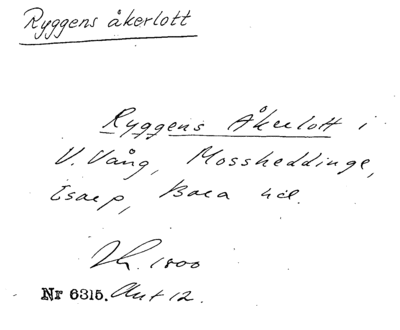 Ryggens åkerlott
Ryggens Åkerlott i
V. Vång, Mossheddinge,
Esarp, Bara hd.
1800
Nr 6315. Akt 12.